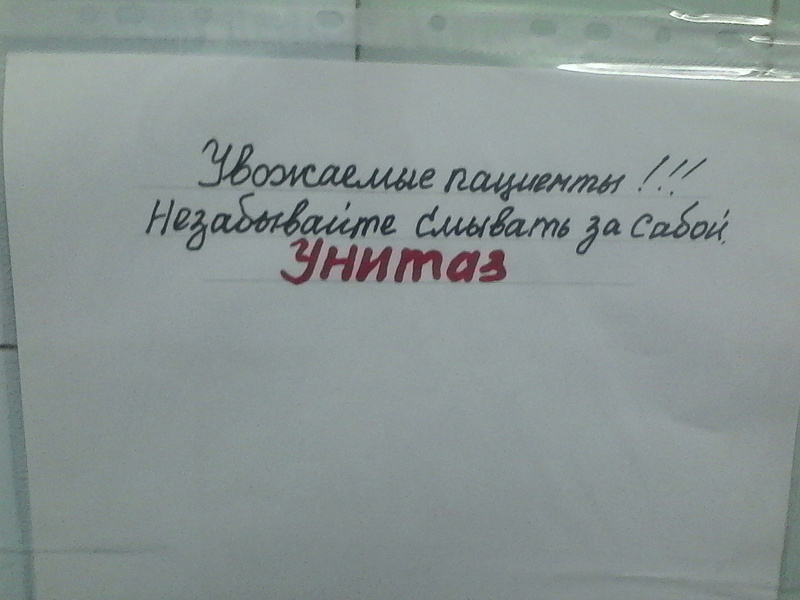 Увожаемые пациенты!!!
Незабывайте смывать за сабой.
Унитаз